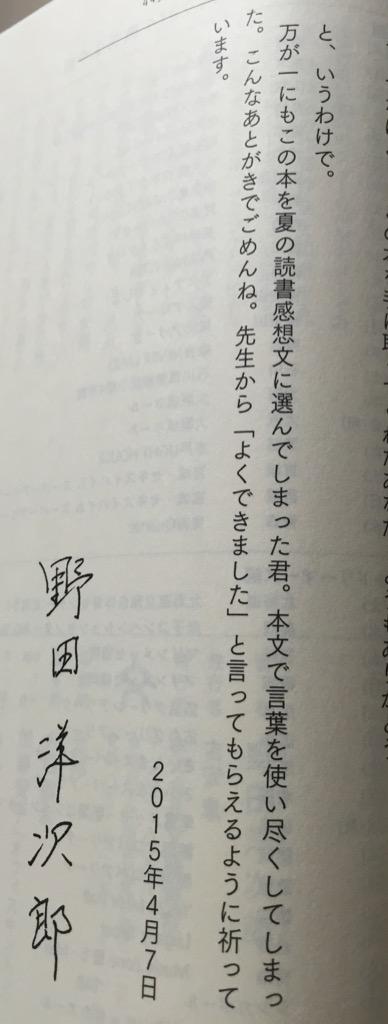 と、いうわけで。
万が一にもこの本を夏の読書感想文に選んでしまった君。本文で言葉を使い尽くしてしまっ
た。こんなあとがきでごめんね。先生から「よくできました」と言ってもらえるように祈って
います。
2015年4月7日
野田洋次郎